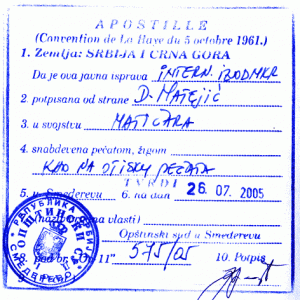 APOSTILLE
(Convention de La Haye du 5 octobre 1961.)
1. Zemlja: SRBIJA I CRNA GORA
Da je ova javna isprava INTERN. IZOD MKR
2. potpisana od strane D. MATEJIĆ
3. u svojstvu MATIČARA
4. snabdevena pečatom, žigom
KAO NA OTISKU PEČATA
TVRDI
5. u Smederevu 6. na dan 26 07. 2005
(naziv vlasti)
Opštinski sud u Smederevu
8. pod br. 575/05 10. Potpis